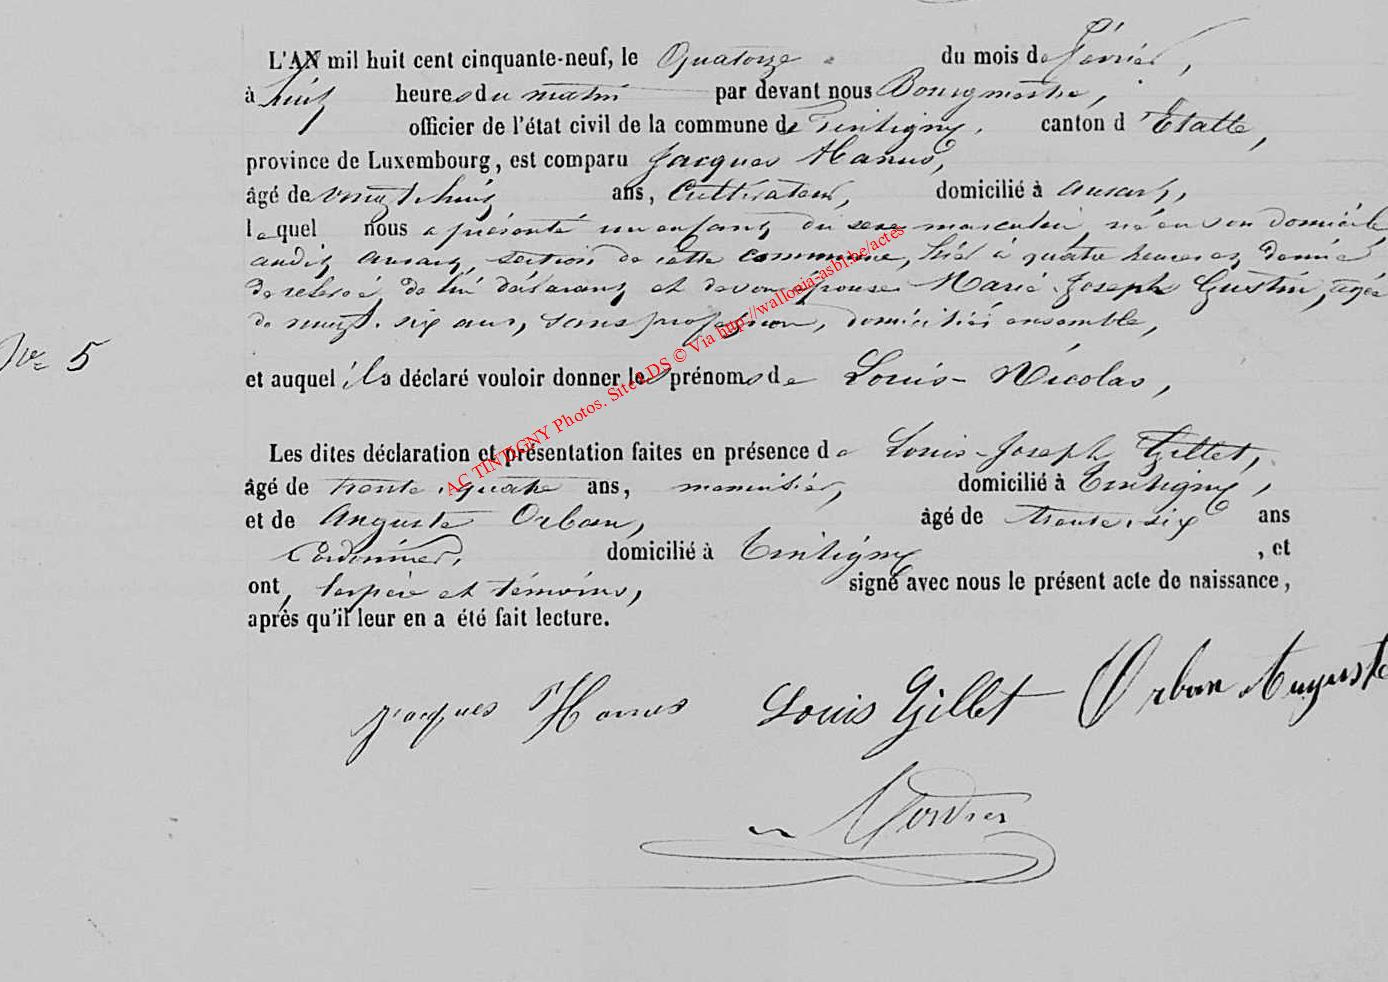 L'AN mil huit cent cinquante-neuf, le Quatorze du mois de février,
à huit heures du matin par devant nous Bourgmestre,
officier de l'état civil de la commune de Tintigny, canton d'Etalle,
province de Luxembourg, est comparu Jacques Hanus,
âgé de vingt-huit ans, Cultivateur, domicilié à ansart,
lequel nous a présenté un enfant du sexe masculin, né en son domicile
audit ansart, section de cette commune, hier à quatre heures et demie
de relevée, de lui déclarant et de son épouse Marie-Joseph Gustin, agée
de vingt-six ans, sans profession, domiciliés ensemble,
Nº 5
et auquel il a déclaré vouloir donner les prénoms de Louis-Nicolas,
Les dites déclaration et présentation faites en présence de Louis-Joseph Gillet,
âgé de trente-quatre ans, menuisier, domicilié à Tintigny,
et de Auguste Orban, âgé de trente-six ans
Cordonnier, domicilié à Tintigny, et
ont, les père et témoins, signé avec nous le présent acte de naissance,
après qu'il leur en a été fait lecture.
jacques Hanus Louis Gillet Orban Auguste
AC TINTIGNY Photos. Site LDS © Via http://wallonia-asbl.be/actes